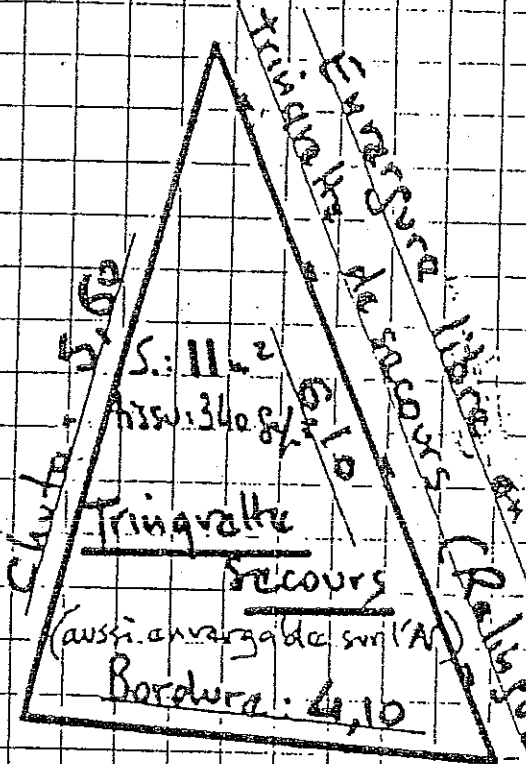 Envergure libre et
tringuette de secours (Ralingue
Chute. 5,60
S.: 11 m²
tissu: 340 g/
6,10
Tringuette
Secours
(aussi enverguée sur l'A
Bordure: 4,10